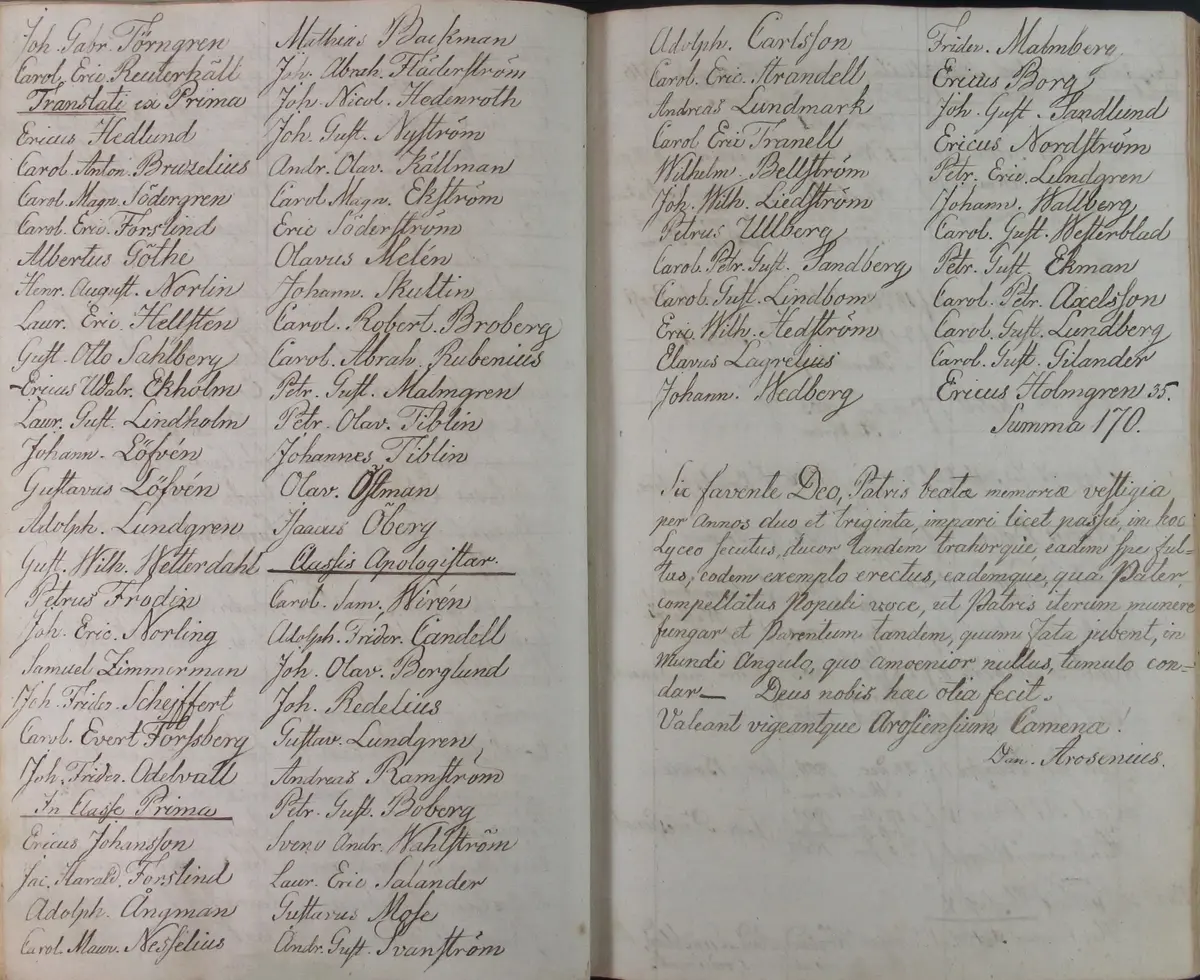 Joh. Gabr. Törngren
Carol. Eric. Reuterhäll
Translati ex Prima
Ericus Hedlund
Carol. Anton. Bruzelius
Carol. Magn. Södergren
Carol. Eric. Forslind
Albertus Göthe
Henr. August. Norlin
Laur. Eric. Hellsten
Gust. Otto Sahlberg
Ericus Waldr. Ekholm
Laur. Gust. Lindholm
Johann. Löfvén
Gustavus Löfvén
Adolph. Lundgren
Gust. Wilh. Wetterdahl
Petrus Frodin
Joh. Eric. Norling
Samuel Zimmerman
Joh. Frider. Scheiffert
Carol. Evert Forssberg
Joh. Frider. Odelvall
In Classe Prima
Ericus Johansson
Jac. Harald. Forslind
Adolph. Ångman
Carol. Maur. Nesselius
Mathias Backman
Joh. Abrah. Fläderström
Joh. Nicol. Hedenroth
Joh. Gust. Nyström
Andr. Olav. Källman
Carol Magn. Ekström
Eric Söderström
Olavus Melén
Johann. Skultin
Carol. Robert. Broberg
Carol. Abrah. Rubenius
Petr. Gust. Malmgren
Petr. Olav. Tiblin
Johannes Tiblin
Olav. Östman
Isaacus Öberg
Classis Apologistar.
Carol. Sam. Wirén
Adolph. Frider. Candell
Joh. Olav. Berglund
Joh. Redelius
Gustav. Lundgren
Andreas Ramström
Petr. Gust. Boberg
Sveno Andr. Wahlström
Laur. Eric Salander
Gustavus Mose
Andr. Gust. Svanström
Adolph. Carlsson
Carol. Eric. Strandell
Andreas Lundmark
Carol Eric Tranell
Wilhelm. Bellström
Joh. Wilh. Liedström
Petrus Ullberg
Carol. Petr. Gust. Sandberg
Carol. Gust. Lindbom
Eric. Wilh. Hedström
Elavus Lagrelius
Johann. Wedberg
Frider. Malmberg
Ericus Borg
Joh. Gust. Sandlund
Ericus Nordström
Petr. Eric. Lundgren
Johann. Wallberg
Carol. Gust. Westerblad
Petr. Gust. Ekman
Carol. Petr. Axelsson
Carol. Gust. Lundberg
Carol. Gust. Gilander
Ericus Holmgren 35.
Summa 170.
Sic favente Deo, Patris beatæ memoriæ vestigia
per annos duo et triginta, impari licet passu, in hoc
Lyceo secutus, ducor tandem trahorque, eadem spe ful-
tus, eodem exemplo erectus, eademque, qua Pater,
compellatus Populi voce, ut Patris iterum munere
fungar et Parentum tandem, quum fata jubent, in
mundi angulo, quo amoenior nullus, tumulo con-
dar— Deus nobis hæc otia fecit.
Valeant vigeantque Arosiensium Camenæ!
Dan. Arosenius.